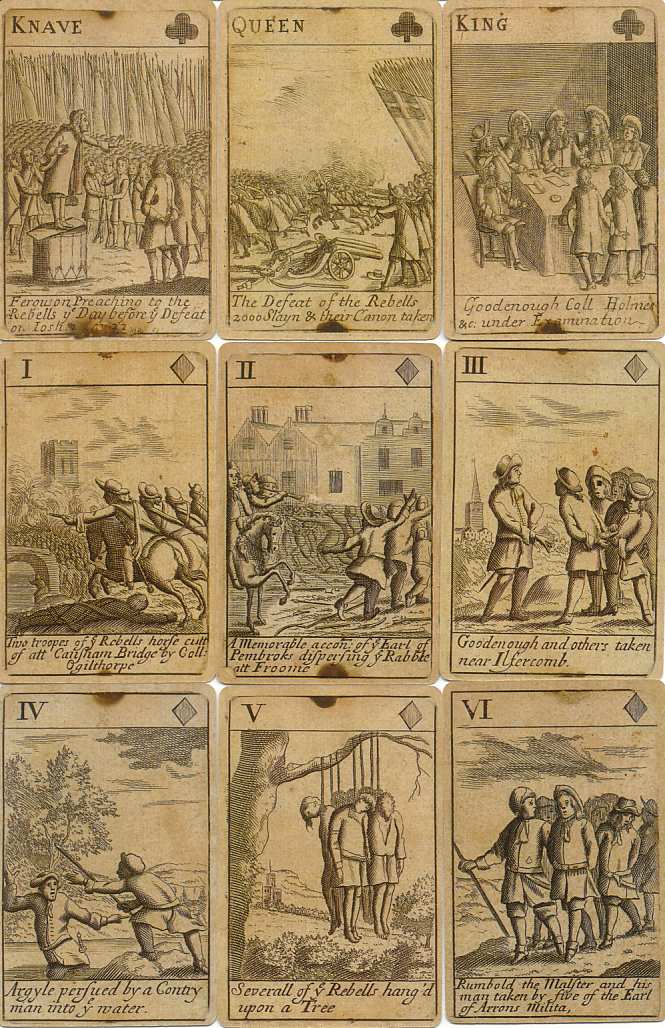 KNAVE
Ferguson Preaching to the
Rebells yᵉ Day before yᵉ Defeat
on Iosh
QUEEN
The Defeat of the Rebells
2000 Slayn & their Canon taken
KING
Goodenough Coll Holmes
&c: under Examination
I
Two troopes of yᵉ Rebells horse cutt
of att Canisham Bridge by Coll:
Ogilthorpe
II
A Memorable accon: of yᵉ Earl of
Pembroks dispersing yᵉ Rabble
att Froome
III
Goodenough and others taken
near Ilfercomb.
IV
Argyle persued by a Contry
man into yᵉ water.
V
Severall of yᵉ Rebells hang'd
upon a Tree
VI
Rumbold the Malster and his
man taken by five of the Earl
of Arrons Milita,